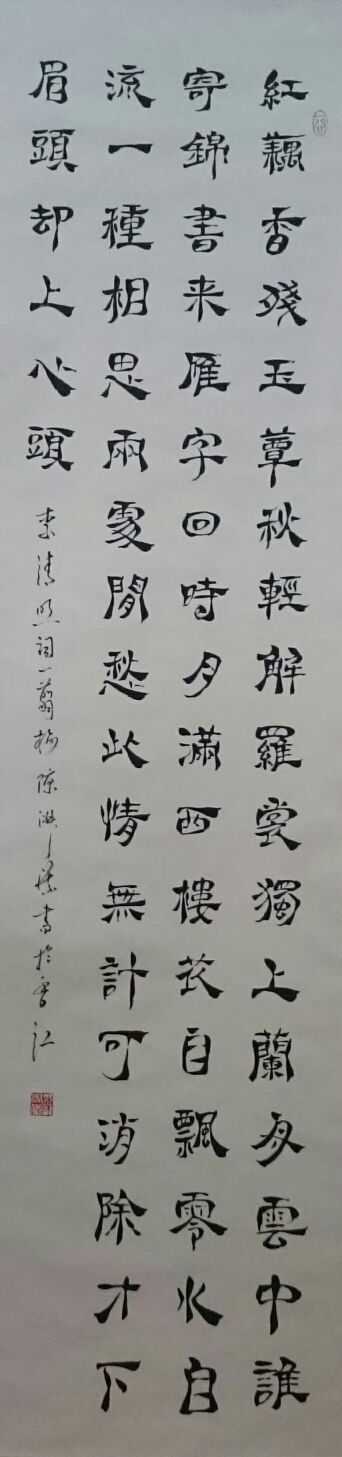 紅藕香殘玉簟秋輕解羅裳獨上蘭舟雲中誰
寄錦書来雁字回時月滿西樓花自飄零水自
流一種相思兩處閒愁此情無計可消除才下
眉頭却上心頭
李清照詞一翦梅 陳淑 書於香江